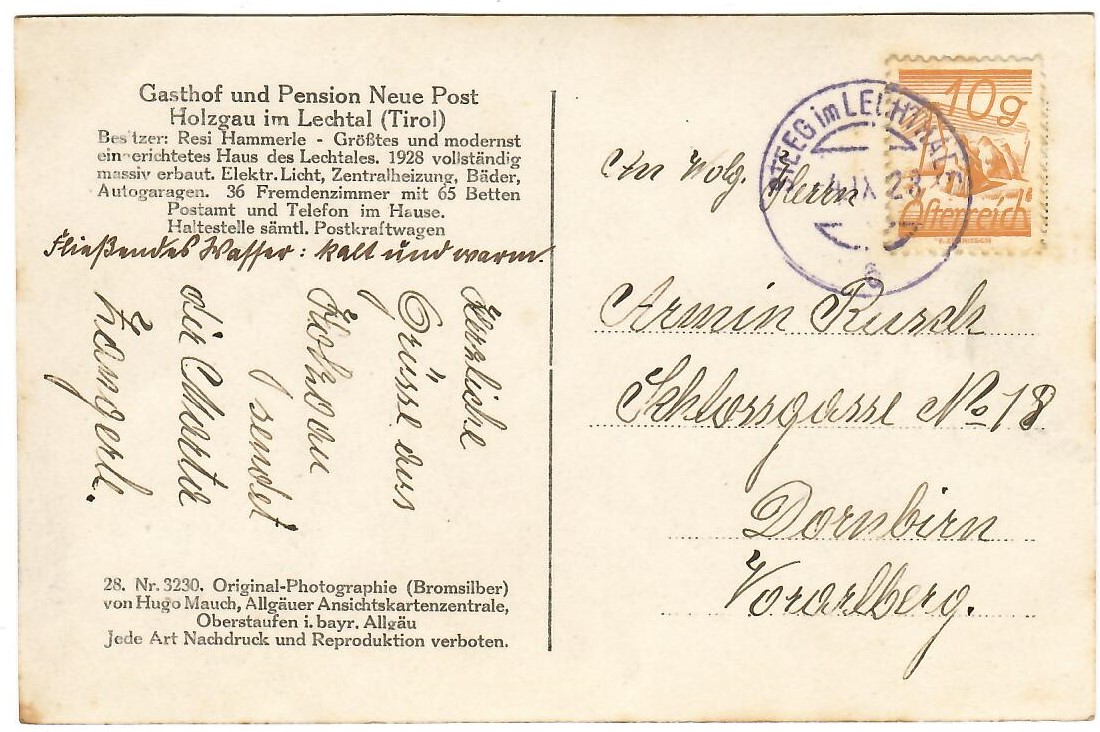 Gasthof und Pension Neue Post
Holzgau im Lechtal (Tirol)
Besitzer: Resi Hammerle - Größtes und modernst
eingerichtetes Haus des Lechtales. 1928 vollständig
massiv erbaut. Elektr. Licht, Zentralheizung, Bäder,
Autogaragen. 36 Fremdenzimmer mit 65 Betten
Postamt und Telefon im Hause.
Haltestelle sämtl. Postkraftwagen
Fließendes Wasser: kalt und warm.
Herzliche
Grüsse aus
Holzgau
sendet
dir Marta
Zangerle.
28. Nr. 3230. Original-Photographie (Bromsilber)
von Hugo Mauch, Allgäuer Ansichtskartenzentrale,
Oberstaufen i. bayr. Allgäu
Jede Art Nachdruck und Reproduktion verboten.
STEEG im LECHTALE
IX 28
a
10g
Österreich
An Wolg. Herrn
Armin Rusch
Schlossgasse No 18
Dornbirn
Vorarlberg.